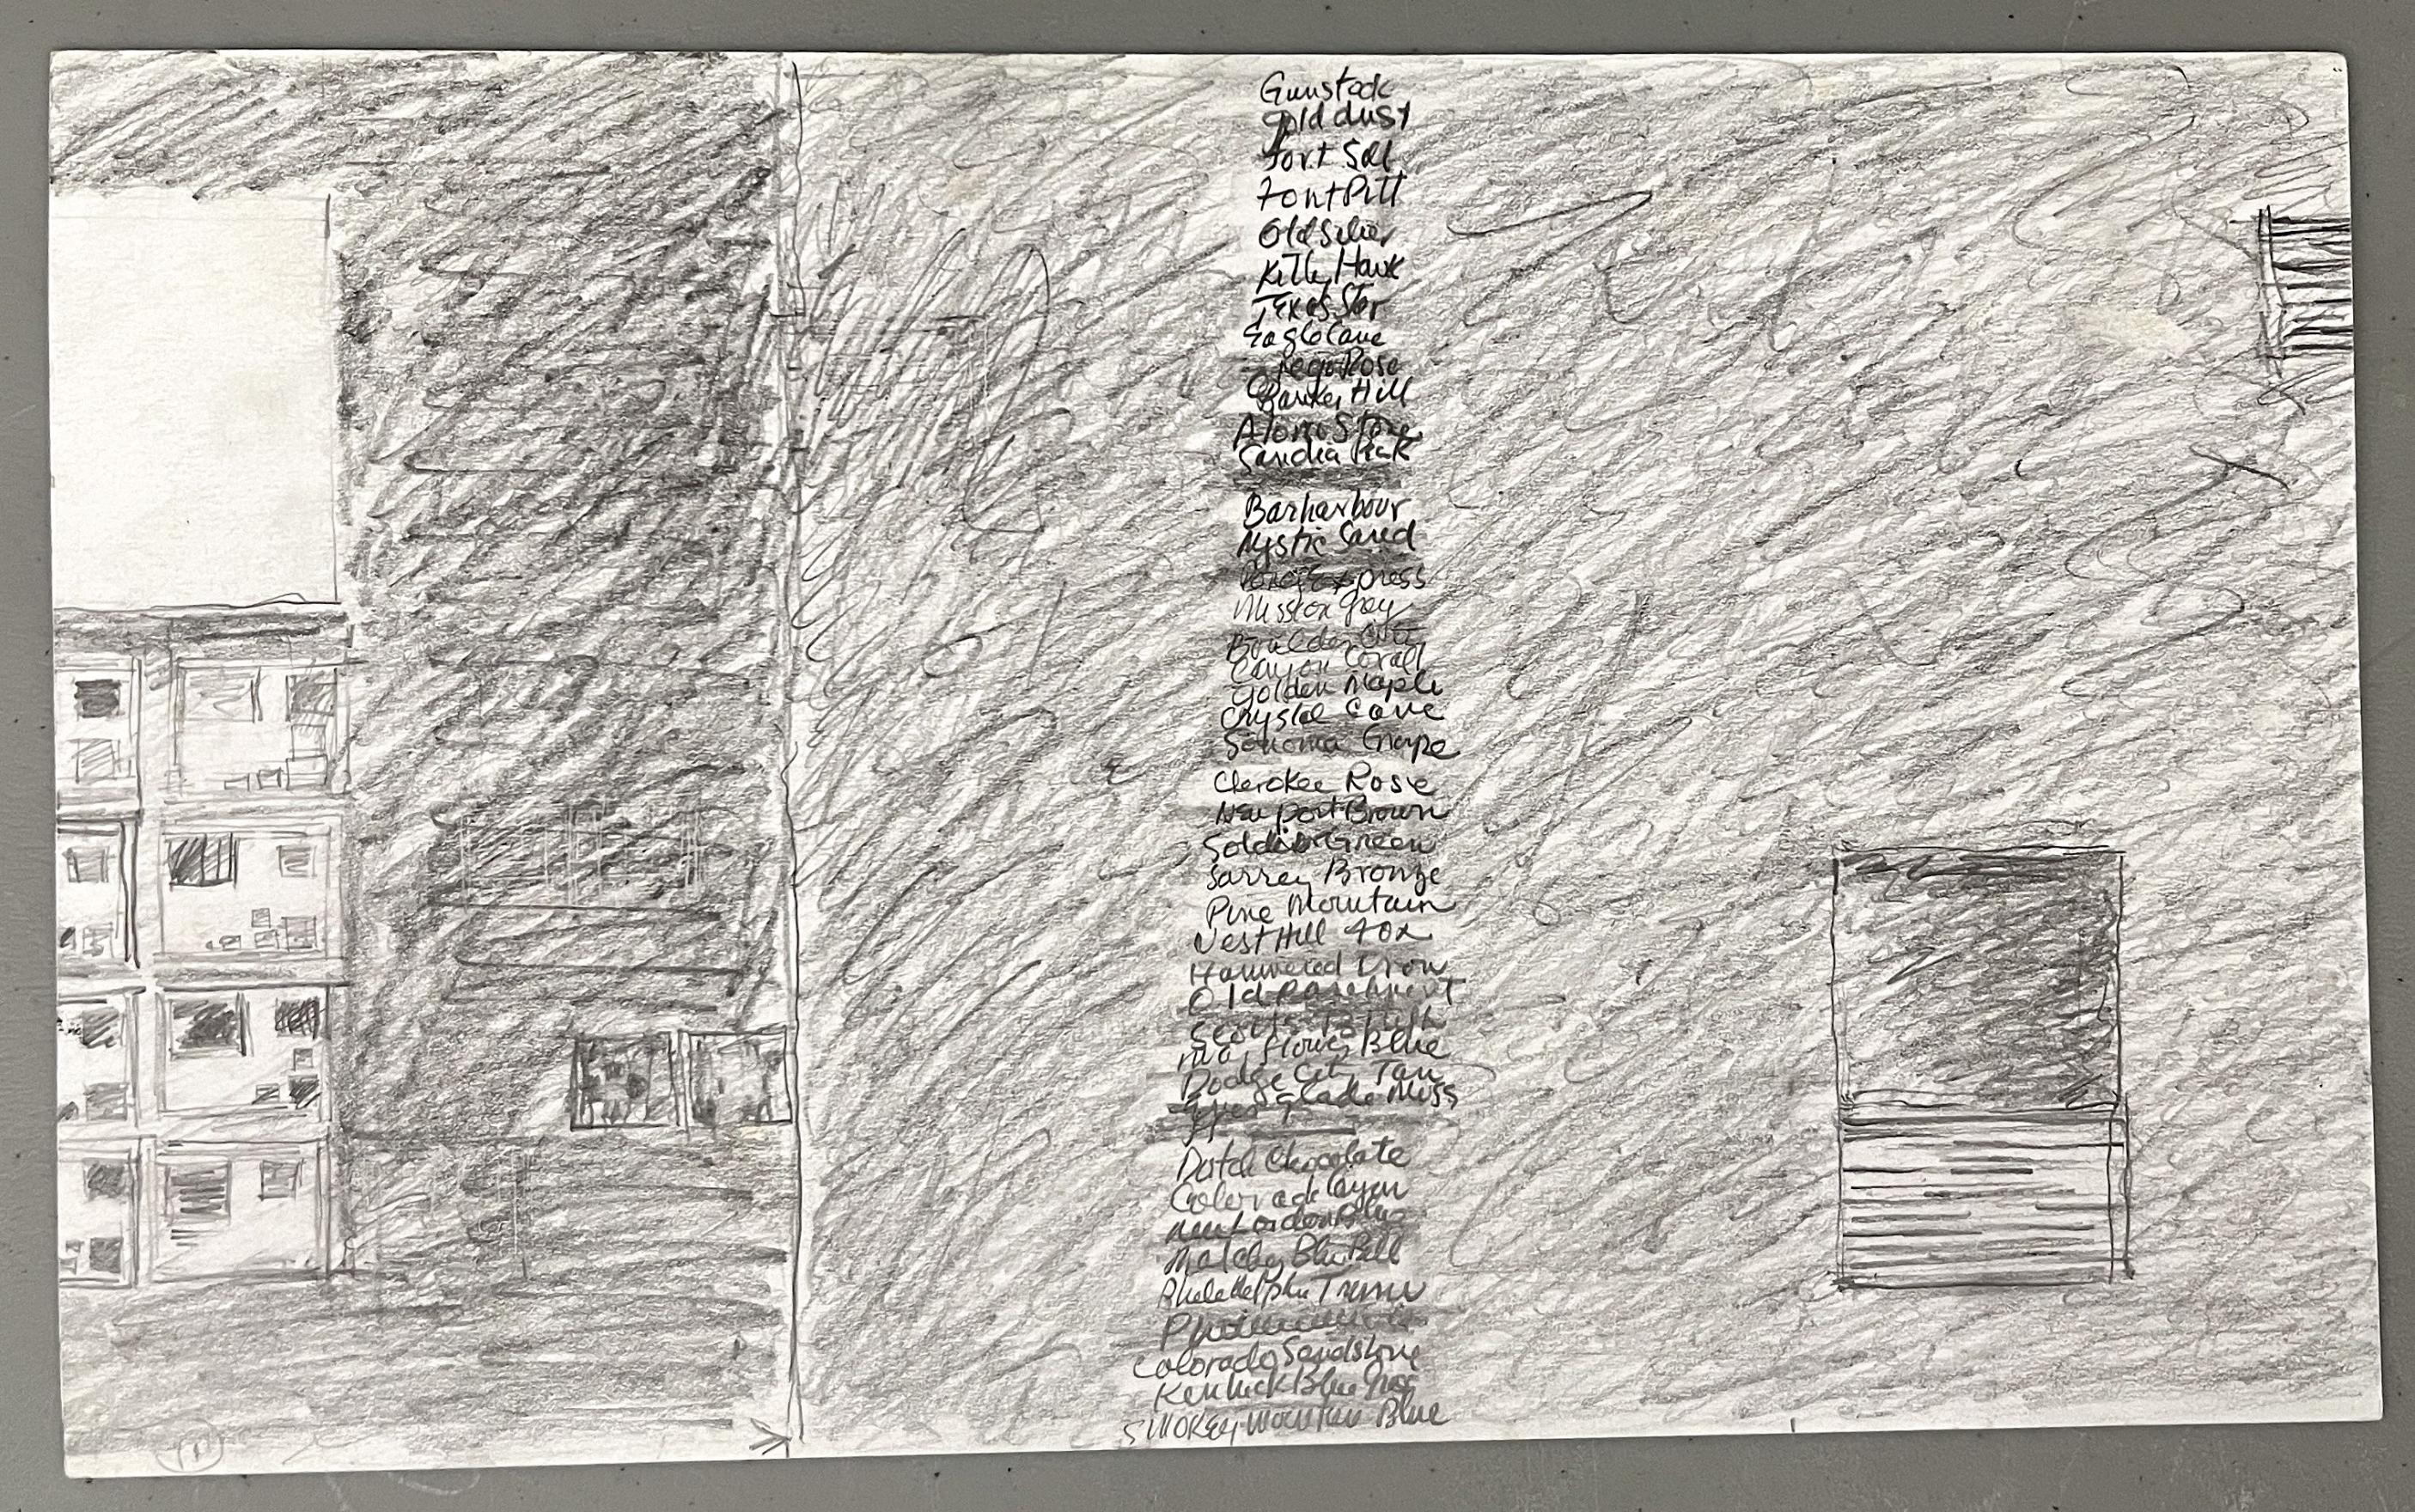 Gunstock
Gold dust
Fort Sill
Font Pitt
Old Silver
Kitty Hawk
Texas Star
Eagle Cave
Rose
Bunker Hill
Alamo Stone
Sandia Peak
Barharbour
Mystic Sand
Pony Express
Mission Grey
Boulder City
Canyon Corall
Golden Maple
Crystal Cave
Sonoma Grape
Cherokee Rose
Newport Brown
Soldier Green
Surrey Bronze
Pine Mountain
Vest Hill Fox
Hammered Iron
Old Parchment
Mayflower Blue
Dodge City Tan
Everglade Moss
Dutch Chocolate
Colorado
New London Blue
Blue Bell
Philadelphia
Colorado Sandstone
Kentuck Blue
Smokey Mountain Blue
11